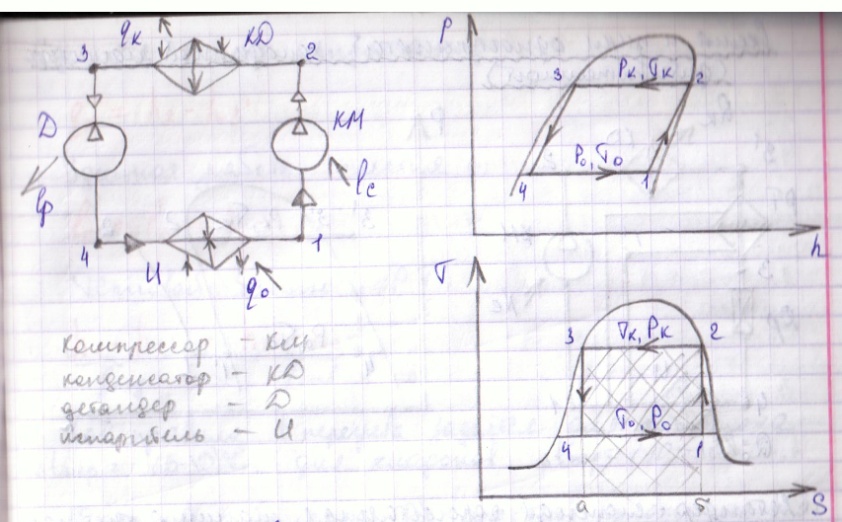 qк
КД
3
2
Д
КМ
lр
lс
4
1
И
q₀
Компрессор – КМ
конденсатор – КД
детандер – Д
испаритель – И
P
3
Pк, Tк
2
P₀, T₀
4
1
h
T
3
Tк, Pк
2
T₀, P₀
4
1
a
б
S